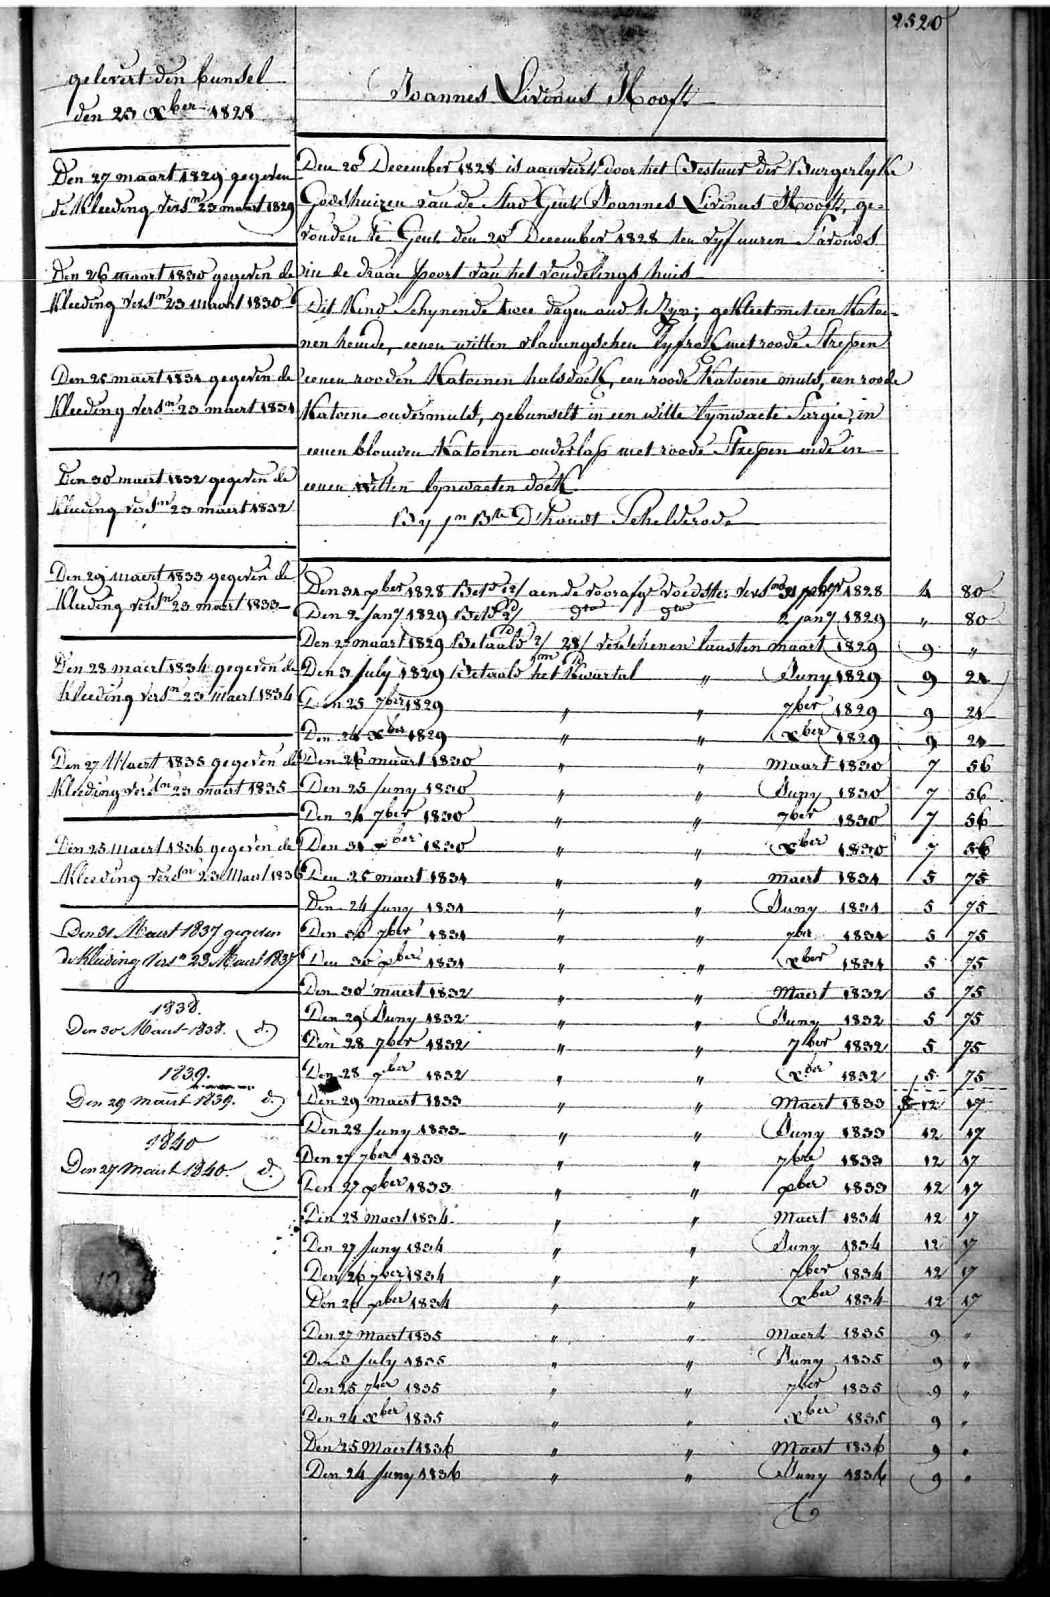 2520
gelevert den bunsel
den 23 xber 1828
Den 27 maart 1829 gegeven
de Kleeding versn 23 maart 1829
Den 26 maart 1830 gegeven de
Kleeding versn 23 maart 1830
Den 25 maert 1831 gegeven de
Kleeding versn 23 maert 1831
Den 30 maert 1832 gegeven de
Kleeding versn 23 maert 1832
Den 29 maert 1833 gegeven de
Kleeding versn 23 maert 1833
Den 28 maert 1834 gegeven de
Kleeding versn 23 maert 1834
Den 27 Maert 1835 gegeven de
Kleeding versn 23 maert 1835
Den 25 maert 1836 gegeven de
Kleeding versn 23 Maert 1836
Den 31 Maert 1837 gegeven
de Kleeding versn 23 Maert 1837
1838.
Den 30 Maert 1838. d.
1839.
Den 29 maert 1839. d.
1840
Den 27 Maert 1840. d.
Joannes Livinus Hooft
Den 20 December 1828 is aanveirt door het Bestuur der Burgerlyke
Godshuizen van de Stad Gent Joannes Livinus Hooft, ge-
vonden te Gent den 20 December 1828 ten vyf uuren s'avonds
in de draai poort van het vondelings huis
Dit Kind Schynende twee dagen oud te zyn; gekleet met een Katoe-
nen hemde, eenen witten vlaemschen lyfrok met roode Strepen
eenen rooden Katoenen halsdoek, een roode Katoene muts, een roode
Katoene ondermuts, gebunselt in een witte lynwaete Sargie, in
eenen blouwen Katoenen onderlap met roode Strepen ende in
eenen witten lynwaeten doek
By Jn Bte D'hondt Schelderode
Den 31 xber 1828 Bets aen de voorafge voedster versn 31 xber 1828 4 80
Den 2 jany 1829 Bets dto dto 2 jany 1829 " 80
Den 27 maart 1829 Betaald 2/ 28/ verschenen laatsten maart 1829 9 "
Den 3 July 1829 Betaald het Kwartal " Juny 1829 9 24
Den 25 7ber 1829 " " 7ber 1829 9 24
Den 24 xber 1829 " " xber 1829 9 24
Den 26 maart 1830 " " Maart 1830 7 56
Den 25 Juny 1830 " " Juny 1830 7 56
Den 24 7ber 1830 " " 7ber 1830 7 56
Den 31 xber 1830 " " xber 1830 7 56
Den 25 maert 1831 " " Maert 1831 5 75
Den 24 Juny 1831 " " Juny 1831 5 75
Den 30 7ber 1831 " " 7ber 1831 5 75
Den 30 xber 1831 " " xber 1831 5 75
Den 30 maert 1832 " " Maert 1832 5 75
Den 29 Juny 1832 " " Juny 1832 5 75
Den 28 7ber 1832 " " 7ber 1832 5 75
Den 28 xber 1832 " " xber 1832 5 75
Den 29 maert 1833 " " Maert 1833 12 17
Den 28 Juny 1833 " " Juny 1833 12 17
Den 27 7ber 1833 " " 7bre 1833 12 17
Den 27 xber 1833 " " xber 1833 12 17
Den 28 Maert 1834 " " Maert 1834 12 17
Den 27 Juny 1834 " " Juny 1834 12 17
Den 26 7ber 1834 " " 7ber 1834 12 17
Den 26 xber 1834 " " xber 1834 12 17
Den 27 Maert 1835 " " Maert 1835 9 "
Den 3 July 1835 " " Juny 1835 9 "
Den 25 7ber 1835 " " 7ber 1835 9 "
Den 24 xber 1835 " " xber 1835 9 "
Den 25 Maert 1836 " " Maert 1836 9 "
Den 24 Juny 1836 " " Juny 1836 9 "